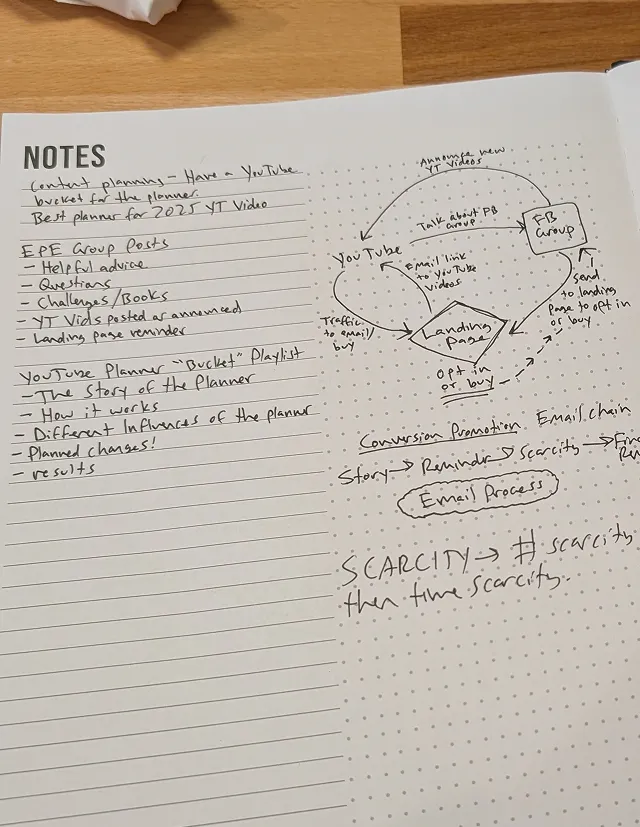 NOTES
Content planning - Have a YouTube
bucket for the planner.
Best planner for 2025 YT Video
EPE Group Posts
- Helpful advice
- Questions
- Challenges/Books
- YT Vids posted as announced
- Landing page reminder
YouTube Planner "Bucket" Playlist
- The Story of the Planner
- How it works
- Different Influences of the planner
- Planned changes!
- results
Announce new
YT Videos
Talk about FB
Group
FB
Group
YouTube
Email link
to YouTube
Videos
Send
to landing
page to opt in
or buy
Traffic
to email/
buy
Landing
page
opt in
or buy
Conversion Promotion Email chain
Story → Remindr → Scarcity →
Email Process
SCARCITY → # scarcity
then time scarcity.